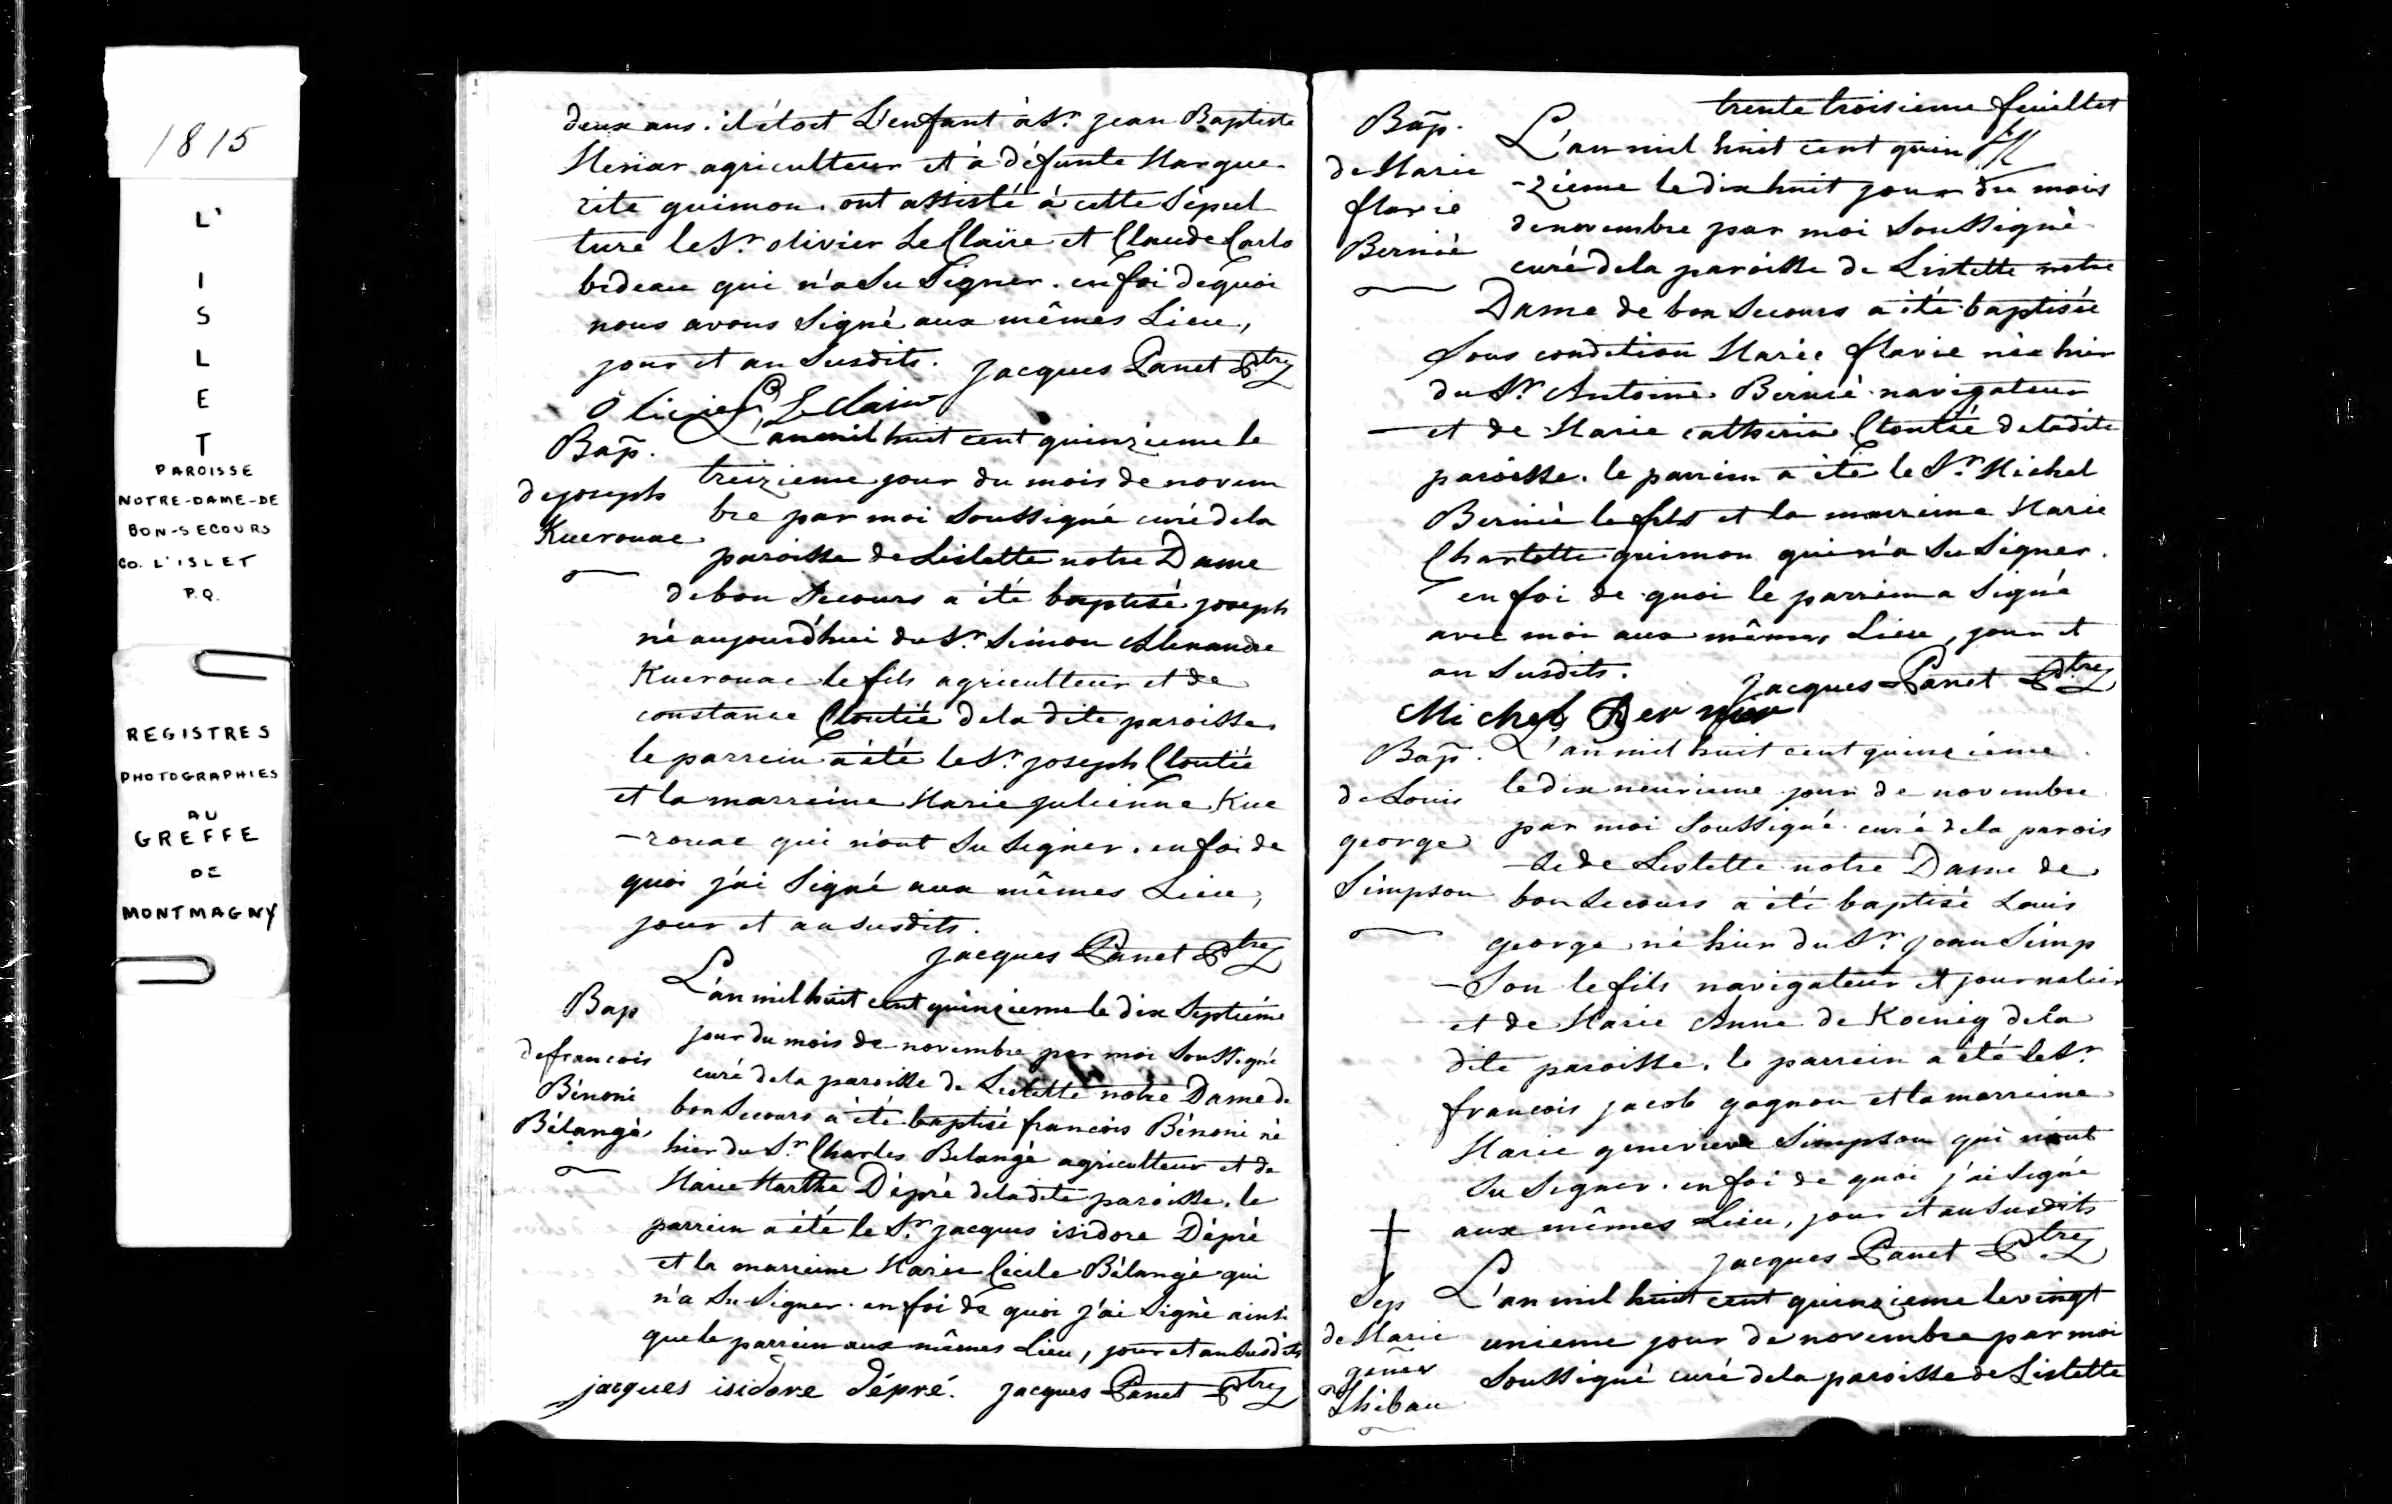 1815
L'
I
S
L
E
T
PAROISSE
NOTRE-DAME-DE
BON-SECOURS
CO. L'ISLET
P.Q.
REGISTRES
PHOTOGRAPHIES
AU
GREFFE
DE
MONTMAGNY
deux ans. il étoit L'enfant à Sr. jean Baptiste
agriculteur et à défunte Margue
rite guimon. ont assisté à cette Sépul
ture le Sr. olivier LeClaire et Claude Carbo
bideau qui n'a Su Signer. en foi de quoi
nous avons Signé aux mêmes Lieu,
jour et an Susdits. jacques Panet Ptre
Olivier LeClaire
Bap̃.
de joseph
Kuerouac
L'an mil huit cent quinzieme le
treizieme jour du mois de novem
bre par moi Soussigné curé de la
paroisse de Lislette notre Dame
de bon Secours a été baptisé joseph
né aujourd'hui du Sr. Simon Alexandre
Kuerouac le fils agriculteur et de
constance Cloutié de la dite paroisse
le parrein a été le Sr. joseph Cloutié
et la marreine Marie julienne Kue
-rouac qui n'ont Su Signer. en foi de
quoi j'ai Signé aux mêmes Lieu,
jour et an susdits.
jacques Panet Ptre
Bap
de francois
Bénoni
Bélangé
L'an mil huit cent quinzieme le dix Septiéme
jour du mois de novembre par moi Soussigné
curé de la paroisse de Lislette notre Dame de
bon Secours a été baptisé francois Bénoni né
hier du Sr. Charles Belangé agriculteur et de
Marie Marthe Dépré de la dite paroisse. le
parrein a été le Sr. jacques isidore Dépré
et la marreine Marie Cécile Bélangé qui
n'a Su Signer. en foi de quoi j'ai Signé ainsi
que le parrein aux mêmes Lieu, jour et an Susdits
jacques isidore dépré. jacques Panet Ptre
trente troisieme feuillet
Bap̃.
de Marie
flavie
Bernié
L'an mil huit cent quin
-zieme le dix huit jour du mois
de novembre par moi Soussigné
curé de la paroisse de Lislette notre
Dame de bon Secours a été baptisée
Sous condition Marie flavie née hier
du Sr. Antoine Bernié navigateur
et de Marie catherine Cloutié de la dite
paroisse. le parrein a été le Sr. Michel
Bernié le fils et la marreine Marie
Charlotte guimon qui n'a Su Signer.
en foi de quoi le parrein a Signé
avec moi aux mêmes Lieu, jour et
an Susdits. jacques Panet Ptre
Michel Bernier
Bap̃.
de Louis
george
Simpson
L'an mil huit cent quinzieme
le dix neuvieme jour de novembre
par moi Soussigné curé de la parois
-se de Lislette notre Dame de
bon Secours a été baptisé Louis
george né hier du Sr. jean Simp
-Son le fils navigateur et journalier
et de Marie Anne de Koenig de la
dite paroisse. le parrein a été le Sr.
francois jacob gagnon et la marreine
Marie genevieve Simpson qui n'ont
Su Signer. en foi de quoi j'ai Signé
aux mêmes Lieu, jour et an Susdits
jacques Panet Ptre
Sep
de Marie
geñev
Thibau
L'an mil huit cent quinzieme le vingt
unieme jour de novembre par moi
Soussigné curé de la paroisse de Lislette